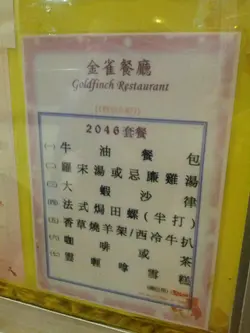 金雀餐廳
Goldfinch Restaurant
2046套餐
(一)牛油餐包
(二)羅宋湯或忌廉雞湯
(三)大蝦沙律
(四)法式焗田螺(半打)
(五)香草燒羊架/西冷牛扒
(六)咖啡或茶
(七)雲軻㖠雪糕